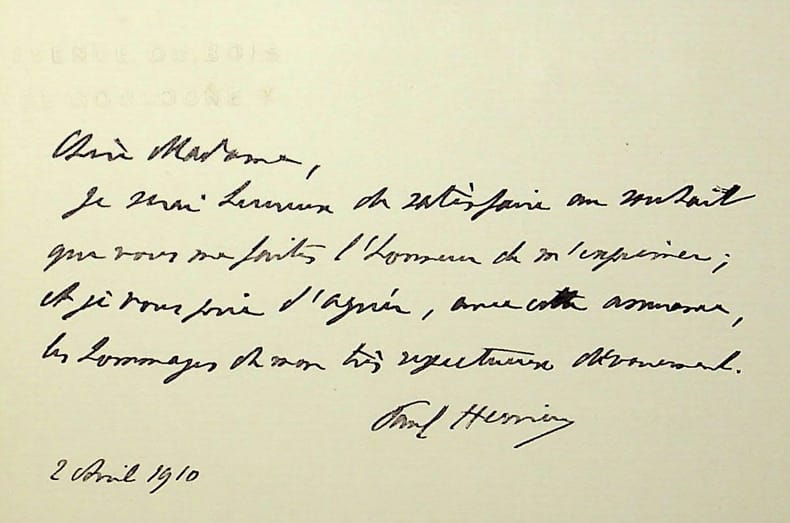 Chère Madame,
Je serai heureux de satisfaire au souhait
que vous me faites l'honneur de m'exprimer ;
et je vous prie d'agréer, avec cette assurance,
les hommages de mon très respectueux dévouement.
Paul Hervieu
2 Avril 1910